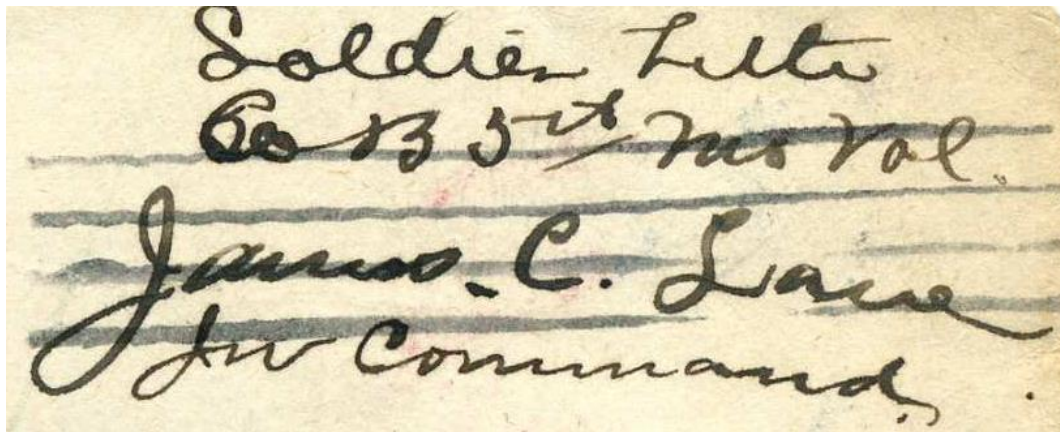 Soldier Letter
Co B 5th Mo Vol.
James. C. Lane
In Command.